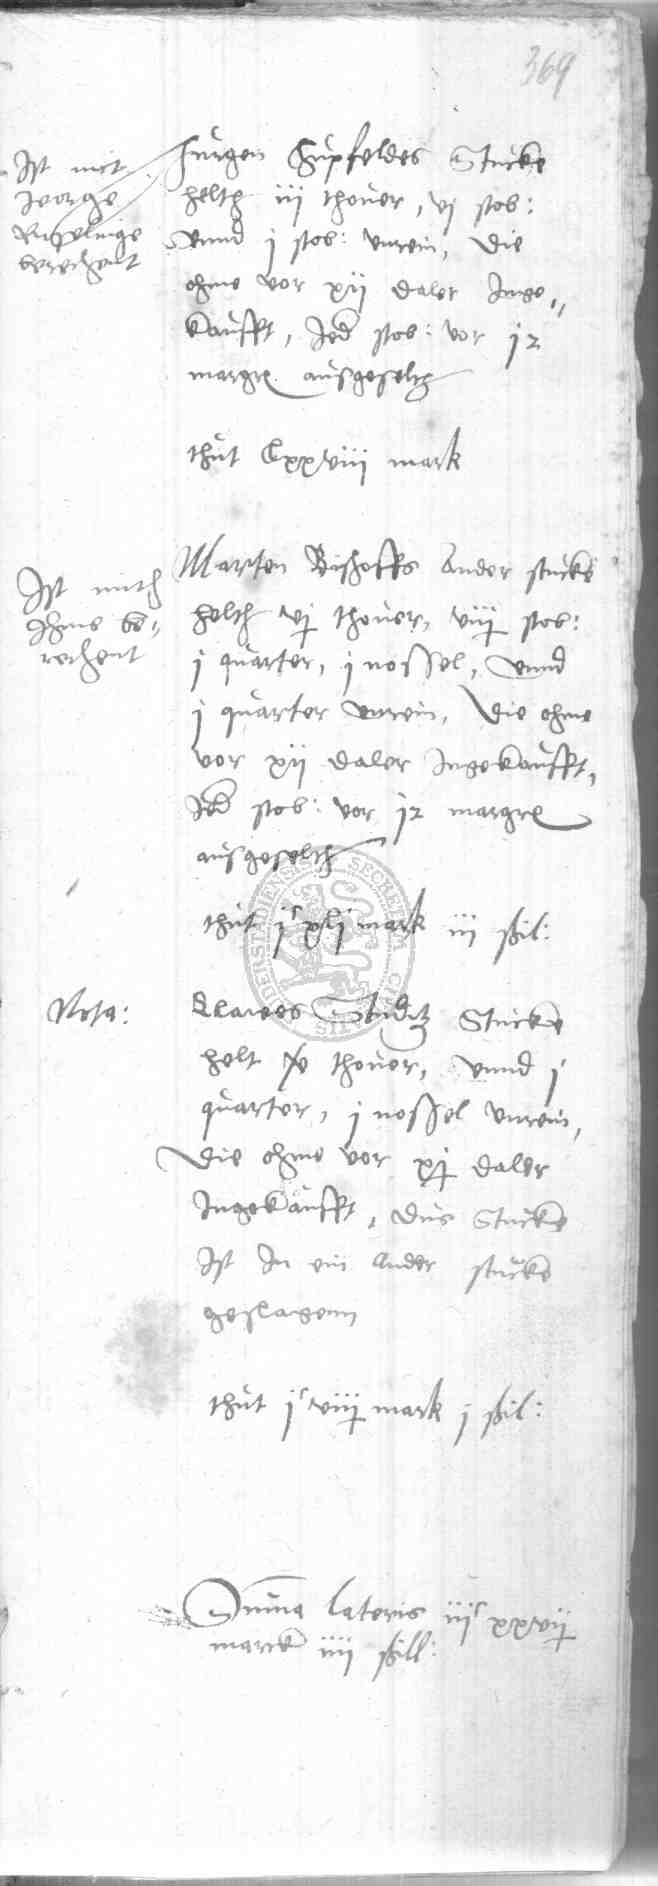 369
Ist mit
Jeorge
berechent
Jurgen Hupfeldes Stucke
helth iij thover, vj stob:
unnd j stob: unrein, die
ohme vor xij daler Inge„
kaufft, Jed stob: vor 12
margel ausgeselth
thut Lxxviij mark
Ist mith
Ihme be„
rechent
Marten Bischoffs Ander stucke
helth vj thover, viij stob:
j quarter, j nossel, unnd
j quarter unrein, die ohme
vor xij daler Ingekaufft,
Jed stob: vor 12 margel
ausgeselth
thut jc xlj mark iij ßil:
Nota:
Clawes Studitz Stucke
helt thover, unnd j
quarter, j nossel unrein,
die ohme vor daler
Ingekaufft, dus Stucke
ist In ein ander stucke
geslagenn
thut jc viij mark j ßil:
Summa lateris iijc xxvij
marck iiij ßill: